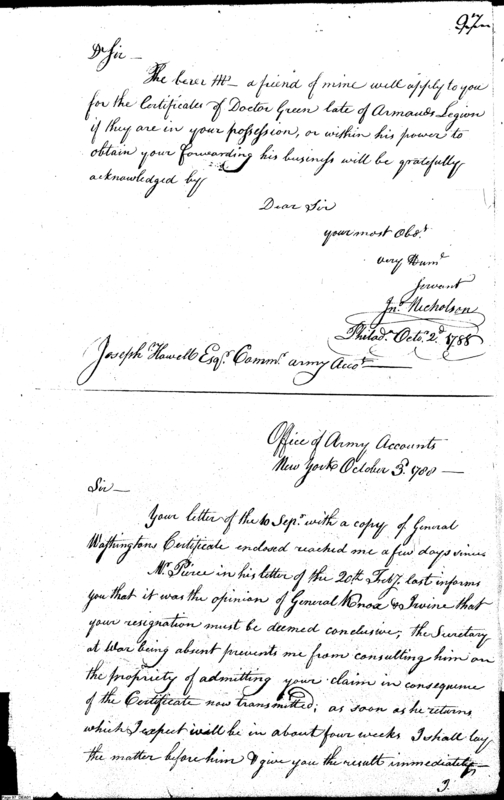 97
Dr Sir —
The berer Mr — a friend of mine will apply to you
for the Certificates of Doctor Green late of Armands Legion
if they are in your possession, or within his power to
obtain your forwarding his business will be gratefully
acknowledged by
Dear Sir
your most Obst
very Humd
Servant
Jno Nicholson
Philada Octo. 2d 1788
Joseph Howell Esqr. Commr. army Accots
Office of Army Accounts
New York October 3d. 1788 —
Sir —
Your letter of the 10 Sepr. with a copy of General
Washingtons Certificate enclosed reached me a few days since
Mr. Pierce in his letter of the 20th Feby. last informs
you that it was the opinion of General Knox & Irvine that
your resignation must be deemed conclusive; the Secretary
at War being absent prevents me from consulting him on
the propriety of admitting your claim in consequence
of the Certificate now transmitted; as soon as he returns
which I expect will be in about four weeks I shall lay
the matter before him & give you the result immediately